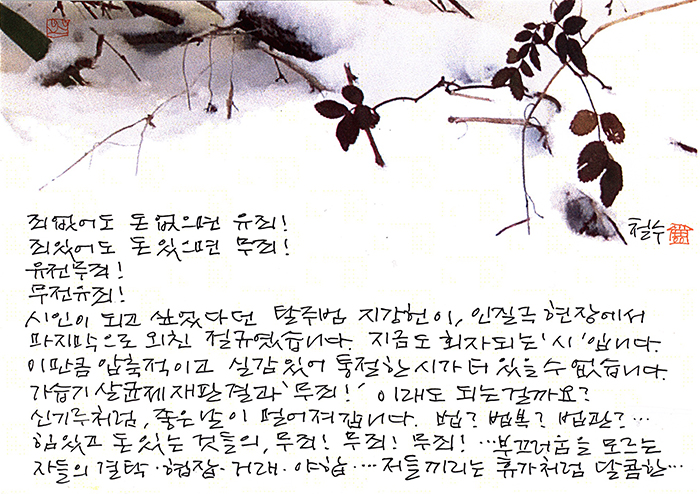 철수
죄없어도 돈 없으면 유죄!
죄있어도 돈 있으면 무죄!
유전무죄!
무전유죄!
시인이 되고 싶었다던 탈주범 지강헌이, 인질극 현장에서
마지막으로 외친 절규였습니다. 지금도 회자되는 '시'입니다.
이만큼 압축적이고 실감있어 통절한 시가 더 있을 수 없습니다.
가습기 살균제 재판 결과 '무죄!' 이래도 되는걸까요?
신기루처럼, 좋은 날이 멀어져 갑니다. 법? 법복? 법관? …
힘있고 돈 있는 것들의, 무죄! 무죄! 무죄! …부끄러움을 모르는
자들의 결탁·협잡·거래·야합…. 저들끼리는 휴가처럼 달콤한…